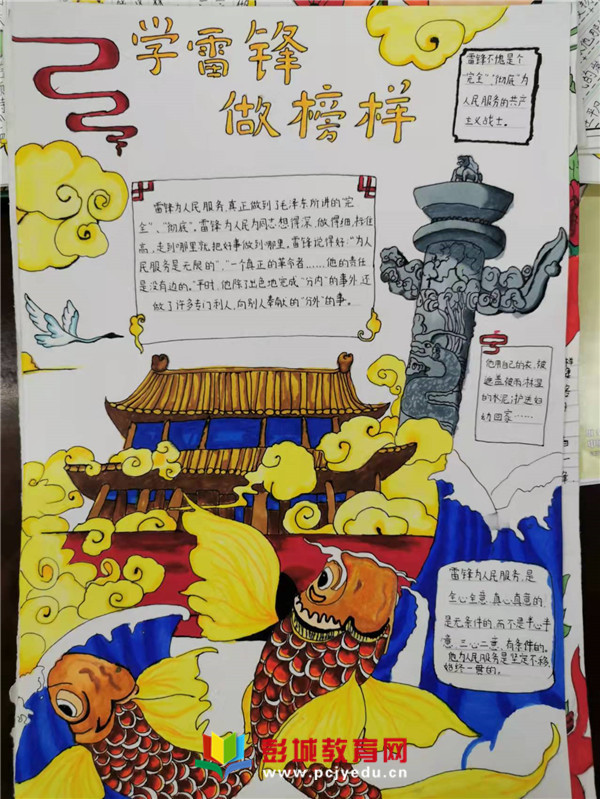 学雷锋
做榜样
雷锋不愧是个
"完全""彻底"为
人民服务的共产
主义战士。
雷锋为人民服务,真正做到了毛泽东所讲的"完
全"、"彻底"。雷锋为人民为同志想得深,做得细,标准
高,走到哪里就把好事做到哪里。雷锋说得好:"为人
民服务是无限的","一个真正的革命者……他的责任
是没有边的。"平时,他除了出色地完成"分内"的事外,还
做了许多专门利人,向别人奉献的"分外"的事。
他用自己的衣、被
遮盖被雨淋湿
的水泥;护送妇
幼回家……
雷锋为人民服务,是
全心全意,真心真意的,
是无条件的,而不是半心半
意,三心二意,有条件的。
他为人民服务是坚定不移,
始终一贯的。
彭城教育网
www.pcjyedu.cn